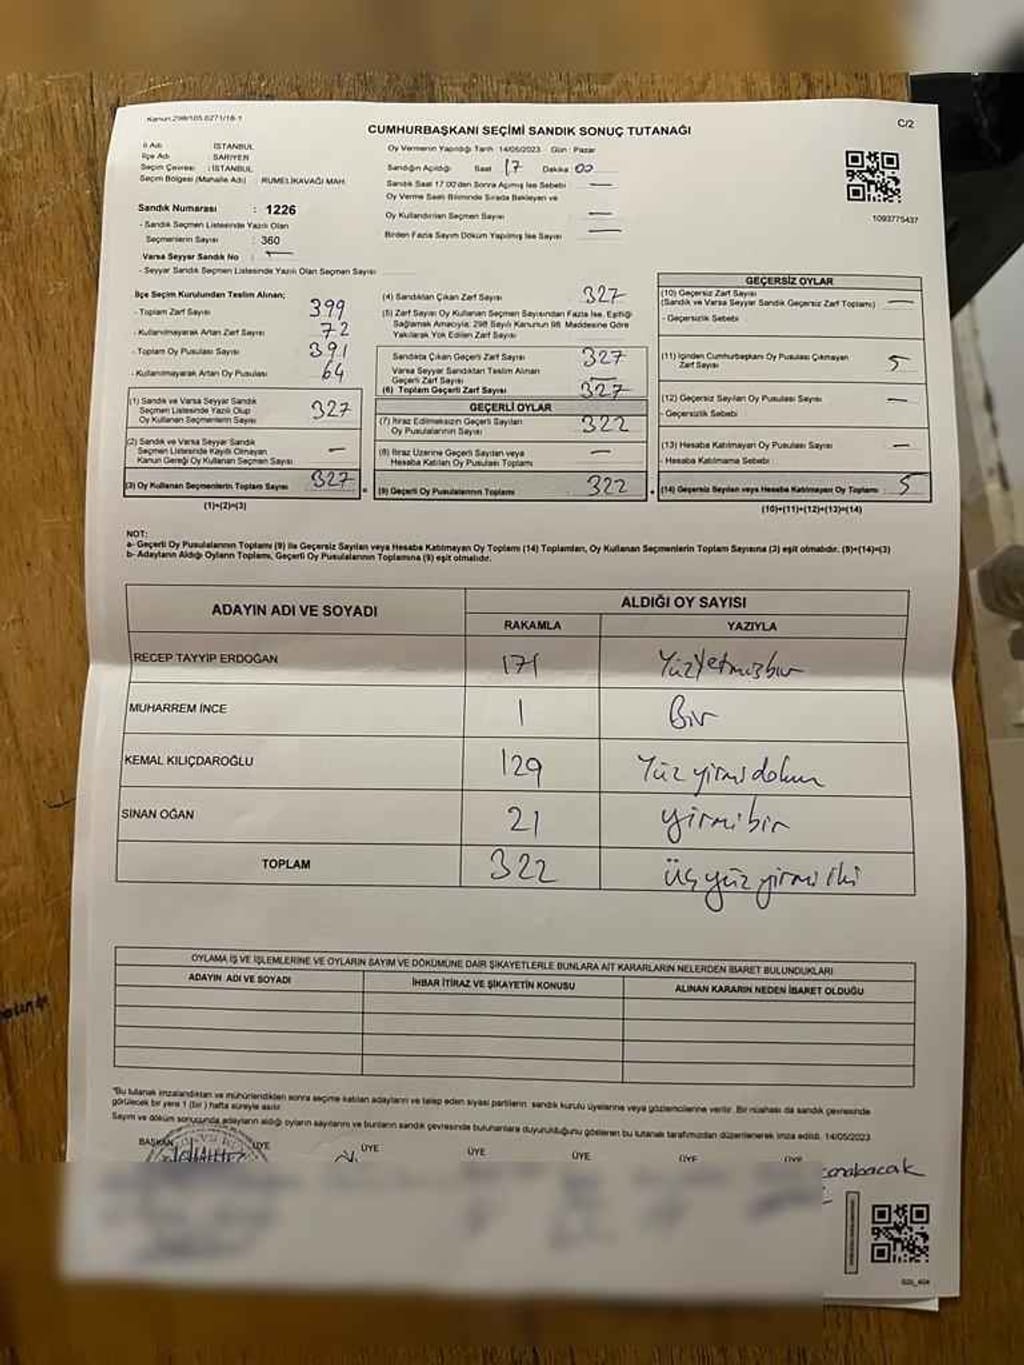 Kanun:298/105.6271/18-1
CUMHURBAŞKANI SEÇİMİ SANDIK SONUÇ TUTANAĞI
C/2
İl Adı : İSTANBUL
İlçe Adı : SARIYER
Seçim Çevresi : İSTANBUL
Seçim Bölgesi (Mahalle Adı) : RUMELİKAVAĞI MAH.
Sandık Numarası : 1226
- Sandık Seçmen Listesinde Yazılı Olan
Seçmenlerin Sayısı : 360
Varsa Seyyar Sandık No : —
- Seyyar Sandık Seçmen Listesinde Yazılı Olan Seçmen Sayısı
Oy Vermenin Yapıldığı Tarih : 14/05/2023 Gün : Pazar
Sandığın Açıldığı Saat 17 Dakika 00
Sandık Saat 17:00'den Sonra Açılmış İse Sebebi —
Oy Verme Saati Bitiminde Sırada Bekleyen ve
Oy Kullandırılan Seçmen Sayısı —
Birden Fazla Sayım Döküm Yapılmış İse Sayısı —
1093775437
İlçe Seçim Kurulundan Teslim Alınan;
- Toplam Zarf Sayısı 399
- Kullanılmayarak Artan Zarf Sayısı 72
- Toplam Oy Pusulası Sayısı 391
- Kullanılmayarak Artan Oy Pusulası 64
(1) Sandık ve Varsa Seyyar Sandık
Seçmen Listesinde Yazılı Olup
Oy Kullanan Seçmen Sayısı 327
(2) Sandık ve Varsa Seyyar Sandık
Seçmen Listesinde Kayıtlı Olmayan
Kanun Gereği Oy Kullanan Seçmen Sayısı —
(3) Oy Kullanan Seçmenlerin Toplam Sayısı 327
(1)+(2)=(3)
(4) Sandıktan Çıkan Zarf Sayısı 327
(5) Zarf Sayısı Oy Kullanan Seçmen Sayısından Fazla İse, Eşitliği
Sağlamak Amacıyla; 298 Sayılı Kanunun 98. Maddesine Göre
Yakılarak Yok Edilen Zarf Sayısı
Sandıkta Çıkan Geçerli Zarf Sayısı 327
Varsa Seyyar Sandıktan Teslim Alınan
Geçerli Zarf Sayısı —
(6) Toplam Geçerli Zarf Sayısı 327
GEÇERLİ OYLAR
(7) İtiraz Edilmeksizin Geçerli Sayılan
Oy Pusulalarının Sayısı 322
(8) İtiraz Üzerine Geçerli Sayılan veya
Hesaba Katılan Oy Pusulası Toplamı —
(9) Geçerli Oy Pusulalarının Toplamı 322
GEÇERSİZ OYLAR
(10) Geçersiz Zarf Sayısı
(Sandık ve Varsa Seyyar Sandık Geçersiz Zarf Toplamı) —
- Geçersizlik Sebebi
(11) İçinden Cumhurbaşkanı Oy Pusulası Çıkmayan
Zarf Sayısı 5
(12) Geçersiz Sayılan Oy Pusulası Sayısı —
- Geçersizlik Sebebi
(13) Hesaba Katılmayan Oy Pusulası Sayısı —
- Hesaba Katılmama Sebebi
(14) Geçersiz Sayılan veya Hesaba Katılmayan Oy Toplamı 5
(10)+(11)+(12)+(13)=(14)
NOT:
a- Geçerli Oy Pusulalarının Toplamı (9) ile Geçersiz Sayılan veya Hesaba Katılmayan Oy Toplamı (14) Toplamları, Oy Kullanan Seçmenlerin Toplam Sayısına (3) eşit olmalıdır. (9)+(14)=(3)
b- Adayların Aldığı Oyların Toplamı, Geçerli Oy Pusulalarının Toplamına (9) eşit olmalıdır.
ADAYIN ADI VE SOYADI
ALDIĞI OY SAYISI
RAKAMLA YAZIYLA
RECEP TAYYİP ERDOĞAN 171 Yüzyetmişbir
MUHARREM İNCE 1 Bir
KEMAL KILIÇDAROĞLU 129 Yüz yirmi dokuz
SİNAN OĞAN 21 yirmi bir
TOPLAM 322 üç yüz yirmi iki
OYLAMA İŞ VE İŞLEMLERİNE VE OYLARIN SAYIM VE DÖKÜMÜNE DAİR ŞİKAYETLERLE BUNLARA AİT KARARLARIN NELERDEN İBARET BULUNDUKLARI
ADAYIN ADI VE SOYADI İHBAR İTİRAZ VE ŞİKAYETİN KONUSU ALINAN KARARIN NEDEN İBARET OLDUĞU
"Bu tutanak imzalandıktan ve mühürlendikten sonra seçime katılan adayların ve talep eden siyasi partilerin sandık kurulu üyelerine veya gözlemcilerine verilir. Bir nüshası da sandık çevresinde
görülecek bir yere 1 (bir) hafta süreyle asılır.
Sayım ve döküm sonucunda adayların aldığı oyların sayılarını ve bunların sandık çevresinde bulunanlara duyurulduğunu gösteren bu tutanak tarafımızdan düzenlenerek imza edildi. 14/05/2023
BAŞKAN ÜYE ÜYE ÜYE ÜYE ÜYE ÜYE